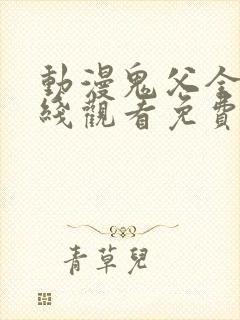 動漫鬼父全
綫觀看免費
青草兒